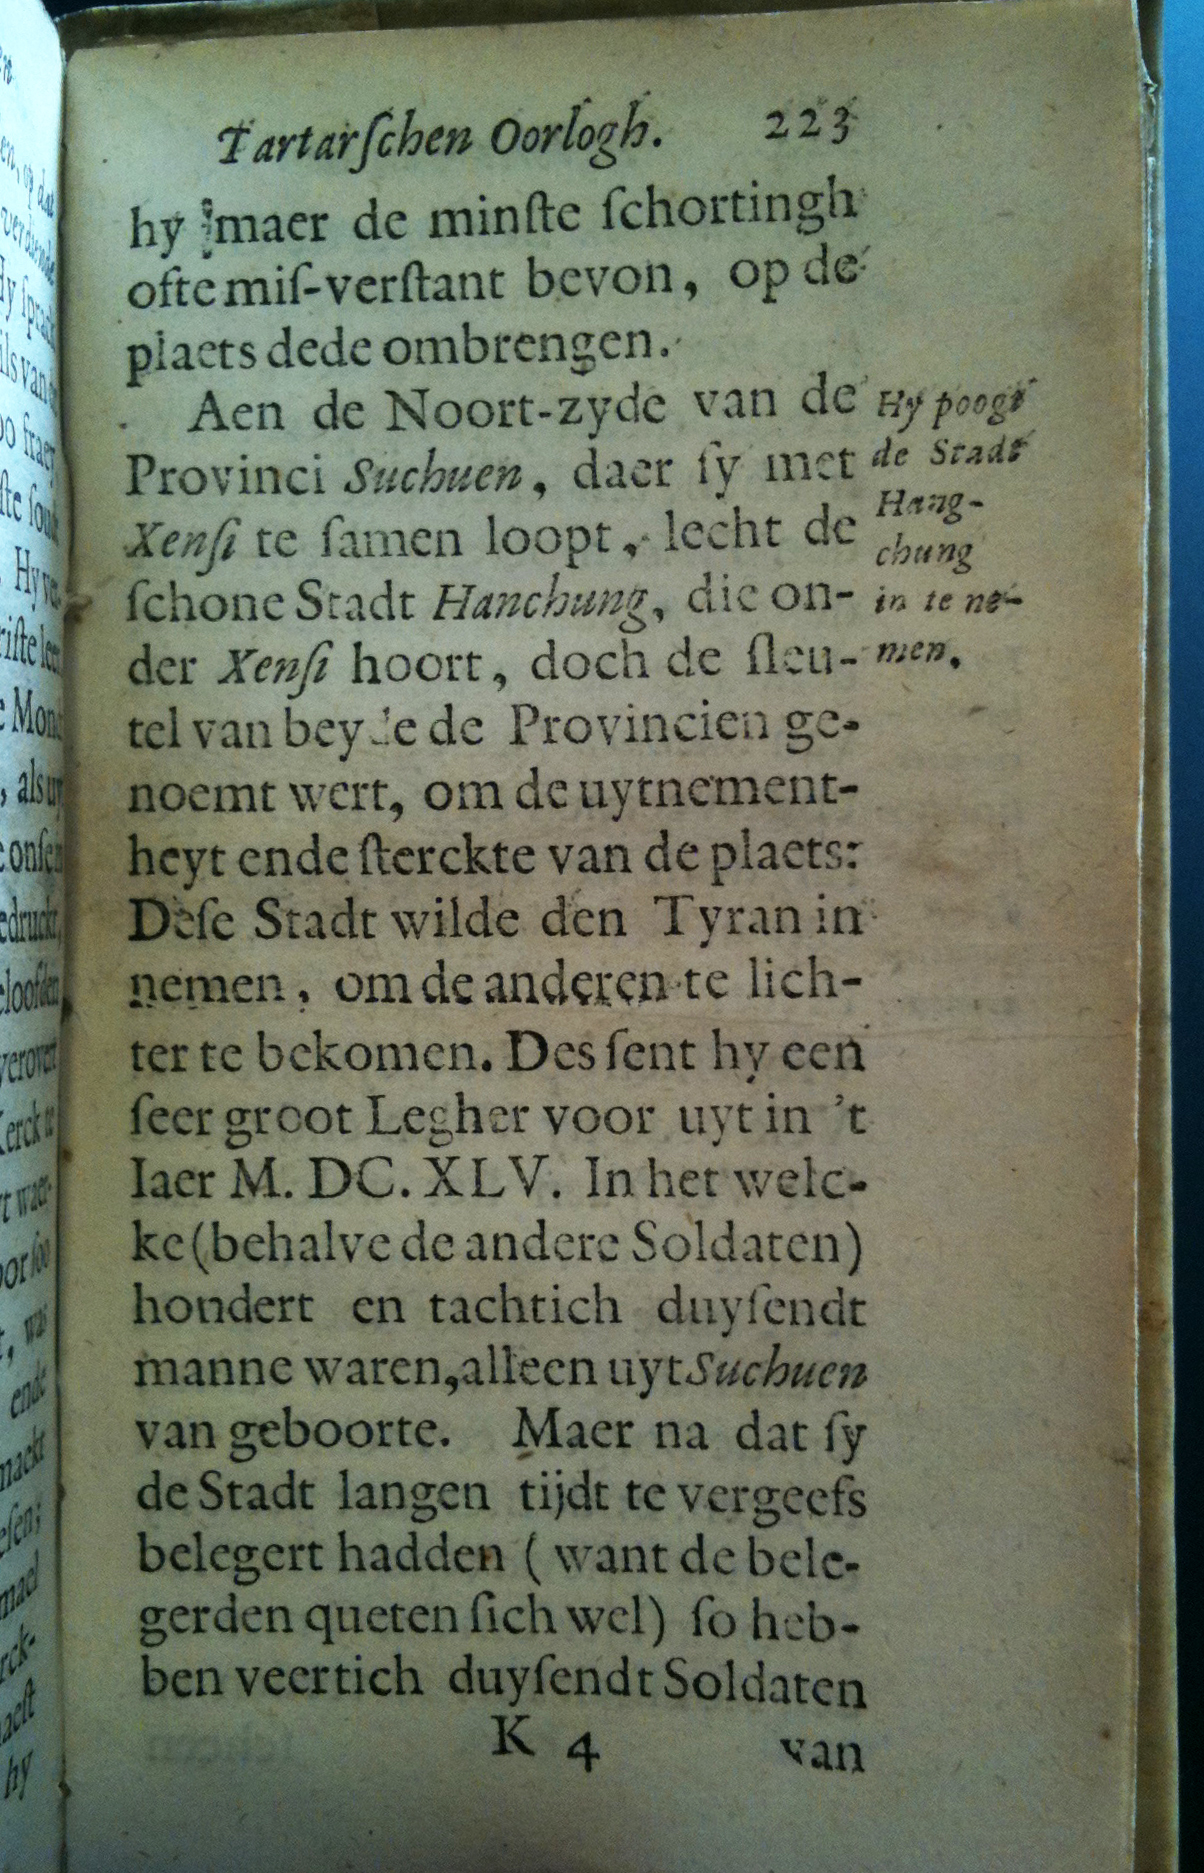 Tartarſchen Oorlogh. 223
hy maer de minſte ſchortingh
ofte miſ-verſtant bevon, op de
plaets dede ombrengen.
Aen de Noort-zyde van de
Provinci Suchuen, daer ſy met
Xenſi te ſamen loopt, lecht de
ſchone Stadt Hanchung, die on-
der Xenſi hoort, doch de ſleu-
tel van beyde de Provincien ge-
noemt wert, om de uytnement-
heyt ende ſterckte van de plaets:
Deſe Stadt wilde den Tyran in
nemen, om de anderen te lich-
ter te bekomen. Des ſent hy een
ſeer groot Legher voor uyt in 't
Iaer M. DC. XLV. In het welc-
ke (behalve de andere Soldaten)
hondert en tachtich duyſendt
manne waren, alleen uyt Suchuen
van geboorte. Maer na dat ſy
de Stadt langen tijdt te vergeefs
belegert hadden ( want de bele-
gerden queten ſich wel) ſo heb-
ben veertich duyſendt Soldaten
K 4 van
Hy poogt
de Stadt
Hang-
chung
in te ne-
men.